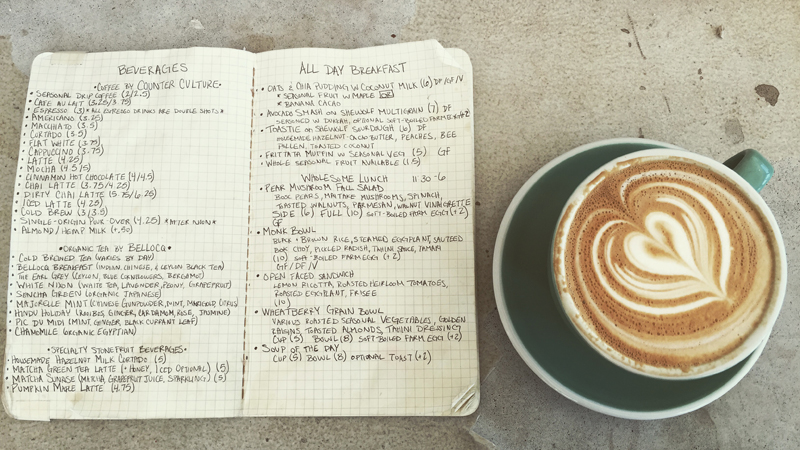 BEVERAGES
•COFFEE BY COUNTER CULTURE•
• SEASONAL DRIP COFFEE (2/2.5)
• CAFE AU LAIT (3.25/3.75)
• ESPRESSO (3) *ALL ESPRESSO DRINKS ARE DOUBLE SHOTS*
• AMERICANO (3.25)
• MACCHIATO (3.5)
• CORTADO (3.5)
• FLAT WHITE (3.75)
• CAPPUCCINO (3.75)
• LATTE (4.25)
• MOCHA (4.5/5)
• CINNAMON HOT CHOCOLATE (4/4.5)
• CHAI LATTE (3.75/4.25)
• DIRTY CHAI LATTE (5.75/6.25)
• ICED LATTE (4.25)
• COLD BREW (3/3.5)
• SINGLE-ORIGIN POUR OVER (4.25) *AFTER NOON*
• ALMOND/HEMP MILK (+.50)
•ORGANIC TEA BY BELLOCQ•
• COLD BREWED TEA (VARIES BY DAY)
• BELLOCQ BREAKFAST (INDIAN, CHINESE, & CEYLON BLACK TEA)
• THE EARL GREY (CEYLON, BLUE CORNFLOWERS, BERGAMOT)
• WHITE NIXON (WHITE TEA, LAVENDER, PEONY, GRAPEFRUIT)
• SENCHA GREEN (ORGANIC JAPANESE)
• MAJORELLE MINT (CHINESE GUNPOWDER, MINT, MARIGOLD, CITRUS)
• HINDU HOLIDAY (ROOIBOS, GINGER, CARDAMOM, ROSE, JASMINE)
• PIC DU MIDI (MINT, GINGER, BLACK CURRANT LEAF)
• CHAMOMILE (ORGANIC EGYPTIAN)
•SPECIALTY STONEFRUIT BEVERAGES•
• HOUSEMADE HAZELNUT MILK CORTADO (5)
• MATCHA GREEN TEA LATTE (+HONEY, ICED OPTIONAL) (5)
• MATCHA SUNRISE (MATCHA, GRAPEFRUIT JUICE, SPARKLING) (5)
• PUMPKIN MAPLE LATTE (4.75)
ALL DAY BREAKFAST
• OATS & CHIA PUDDING W COCONUT MILK (6) DF/GF/V
* SEASONAL FRUIT W MAPLE OR
* BANANA CACAO
• AVOCADO SMASH ON SHEWOLF MULTIGRAIN (7) DF
SEASONED W DUKKAH, OPTIONAL SOFT-BOILED FARM EGG (+2)
• TOASTIE ON SHEWOLF SOURDOUGH (6) DF
HOUSEMADE HAZELNUT-CACAO BUTTER, PEACHES, BEE
POLLEN, TOASTED COCONUT
• FRITTATA MUFFIN W SEASONAL VEG (5) GF
• WHOLE SEASONAL FRUIT AVAILABLE (1.5)
WHOLESOME LUNCH 11:30-6
• PEAR MUSHROOM FALL SALAD
BOSC PEARS, MAITAKE MUSHROOMS, SPINACH,
TOASTED WALNUTS, PARMESAN, WALNUT VINAIGRETTE
SIDE (6) FULL (10) SOFT-BOILED FARM EGG (+2)
GF
• MONK BOWL
BLACK + BROWN RICE, STEAMED EGGPLANT, SAUTEED
BOK CHOY, PICKLED RADISH, TAHINI SAUCE, TAMARI
(10) SOFT-BOILED FARM EGG (+2)
GF/DF/V
• OPEN FACED SANDWICH
LEMON RICOTTA, ROASTED HEIRLOOM TOMATOES,
ROASTED EGGPLANT, FRISEE
(10)
• WHEATBERRY GRAIN BOWL
VARIOUS ROASTED SEASONAL VEGETABLES, GOLDEN
RAISINS, TOASTED ALMONDS, TAHINI DRESSING
CUP (5) BOWL (8) SOFT-BOILED FARM EGG (+2)
• SOUP OF THE DAY
CUP (5) BOWL (8) OPTIONAL TOAST (+2)